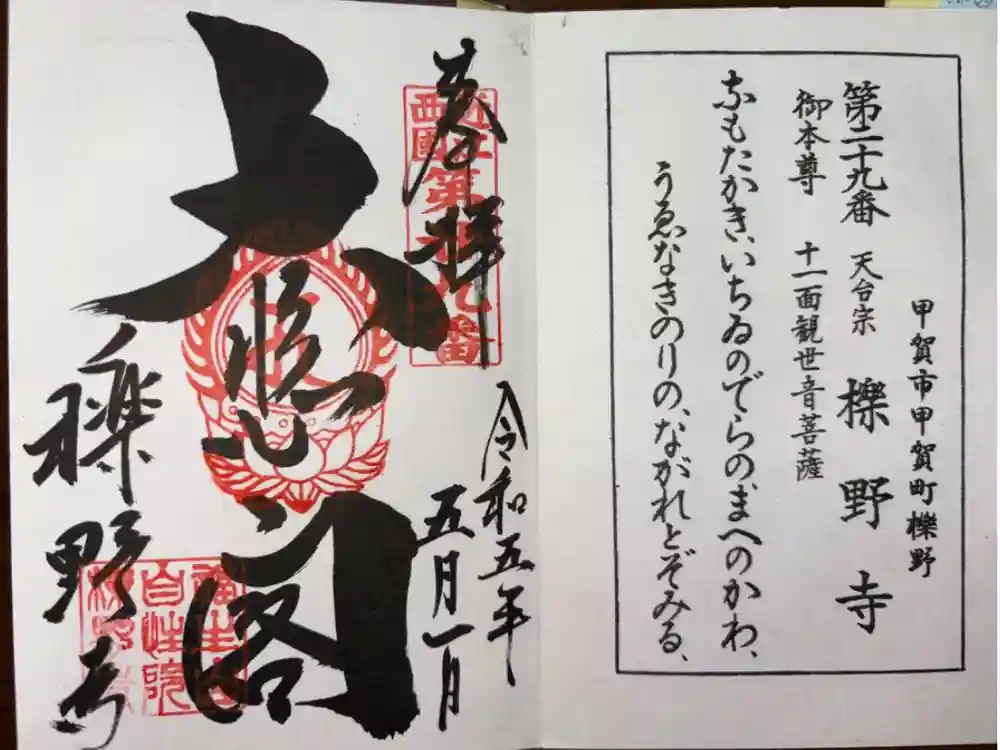 甲賀市甲賀町櫟野
第二十九番 天台宗 櫟野寺
御本尊 十一面観世音菩薩
なもたかき、いちゐのでらのまへのかわ、
うゑなきのりの、ながれとぞみる、
奉拝
令和五年
五月一日
大悲閣
櫟野寺
近江
西國
第廿九番
福生山
自性院
櫟野寺